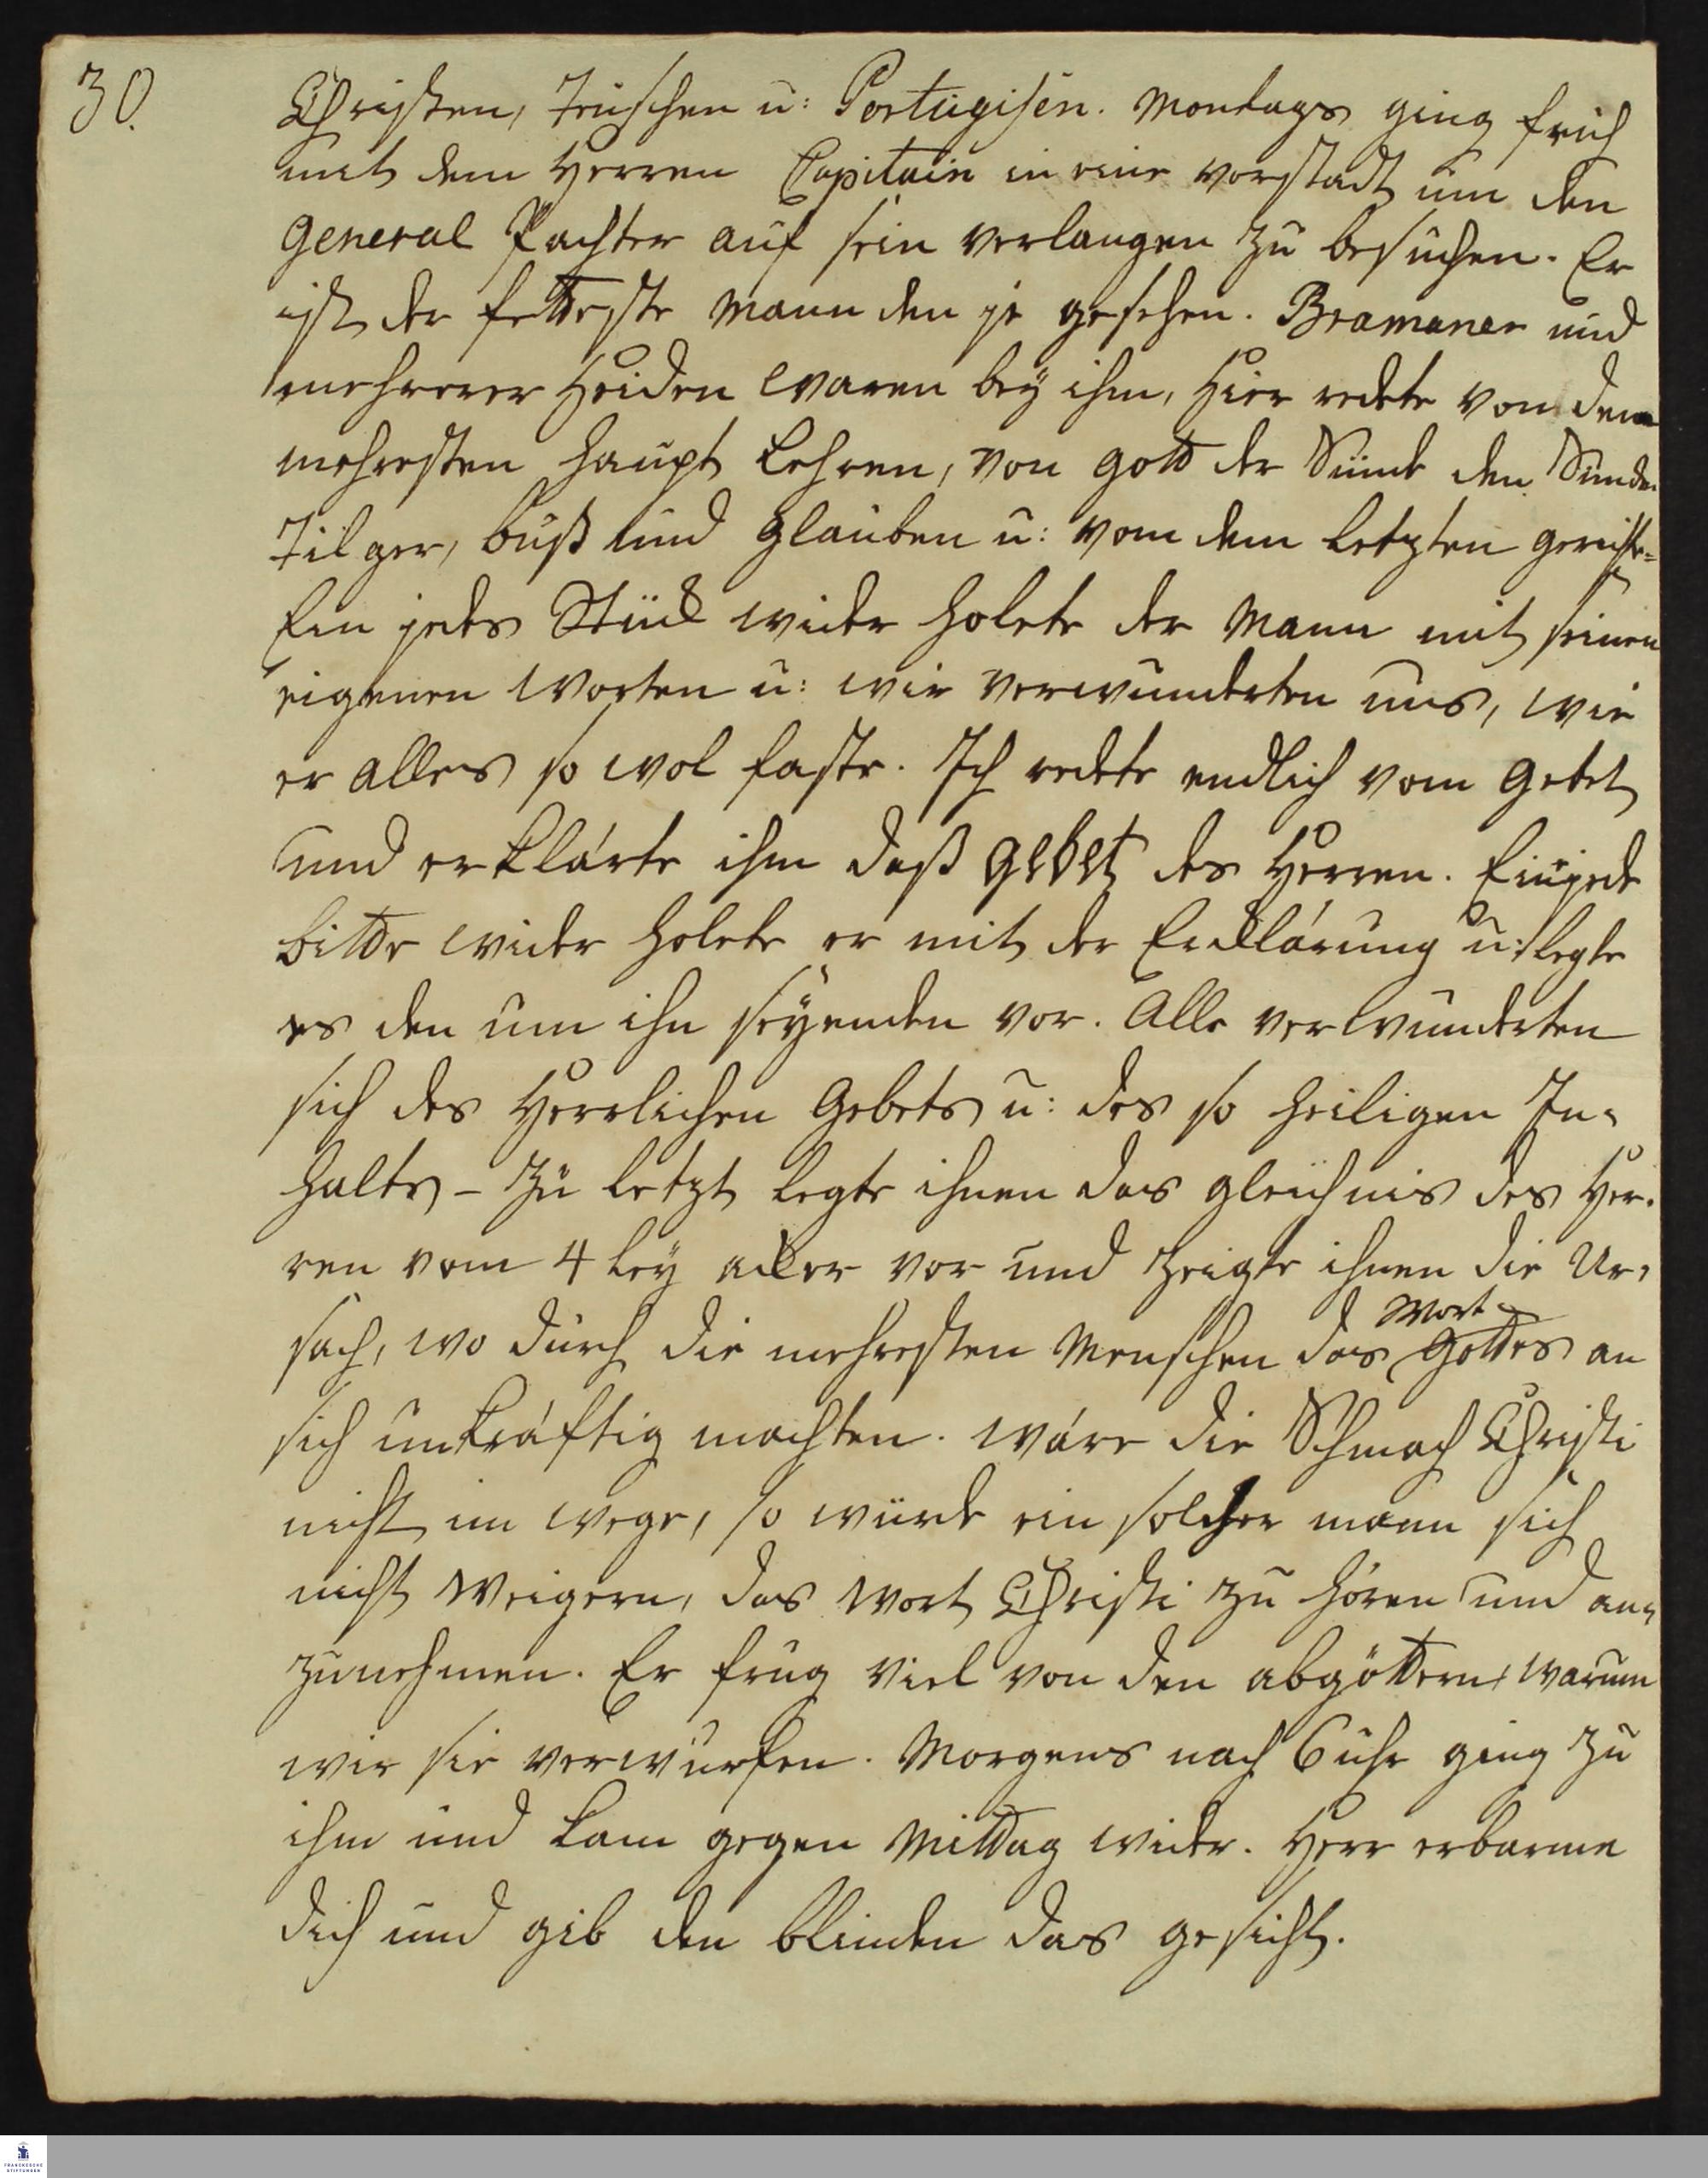 30.
Christen, Teuschen u: Portugisen. Montags ging früh
mit dem Herren Capitain in eine vorstadt um den
General Pachter auf sein verlangen zu besuchen. Er
ist der fetteste Mann den je gesehen. Bramaner und
mehrerer Heiden waren bey ihm, hier redete von den
mehresten Haupt Lehren, von Gott der Sünde den Sünden
Tilger, buß und Glauben u: vom dem letzten gerichte.
Ein jedes Stück wider holete der Mann mit seinen
eigenen Worten u: wir verwunderten uns, wie
er alles so wol faste. Ich redete endlich vom Gebet
und erklärte ihm daß Gebet des Herren. Ein jede
bitte wider holete er mit der Erklärung u: legte
es den um ihn seyenden vor. Alle verwunderten
sich des Herrlichen Gebets u: des so heiligen In-
halts – Zu letzt legte ihnen das gleichnis des Her-
ren vom 4 ley acker vor und zeigte ihnen die Ur-
sach, wo durch die mehresten Menschen das Wort Gottes an
sich unkräftig machten. wäre die Schmach Christi
nicht im wege, so würde ein solcher mann sich
nicht weigern, das Wort Christi zu hören und an-
zunehmen. Er frug viel von den abgöttern, warum
wir sie verwürfen. Morgens nach 6 uhr ging zu
ihm und kam gegen Mittag wider. Herr erbarme
dich und gib den blinden das gesicht.
FRANCKESCHE
STIFTUNGEN